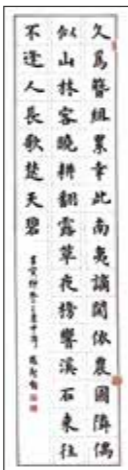 久為簪組累幸此南夷謫閑依農圃隣偶
似山林客曉耕翻露草夜榜響溪石來往
不逢人長歌楚天碧